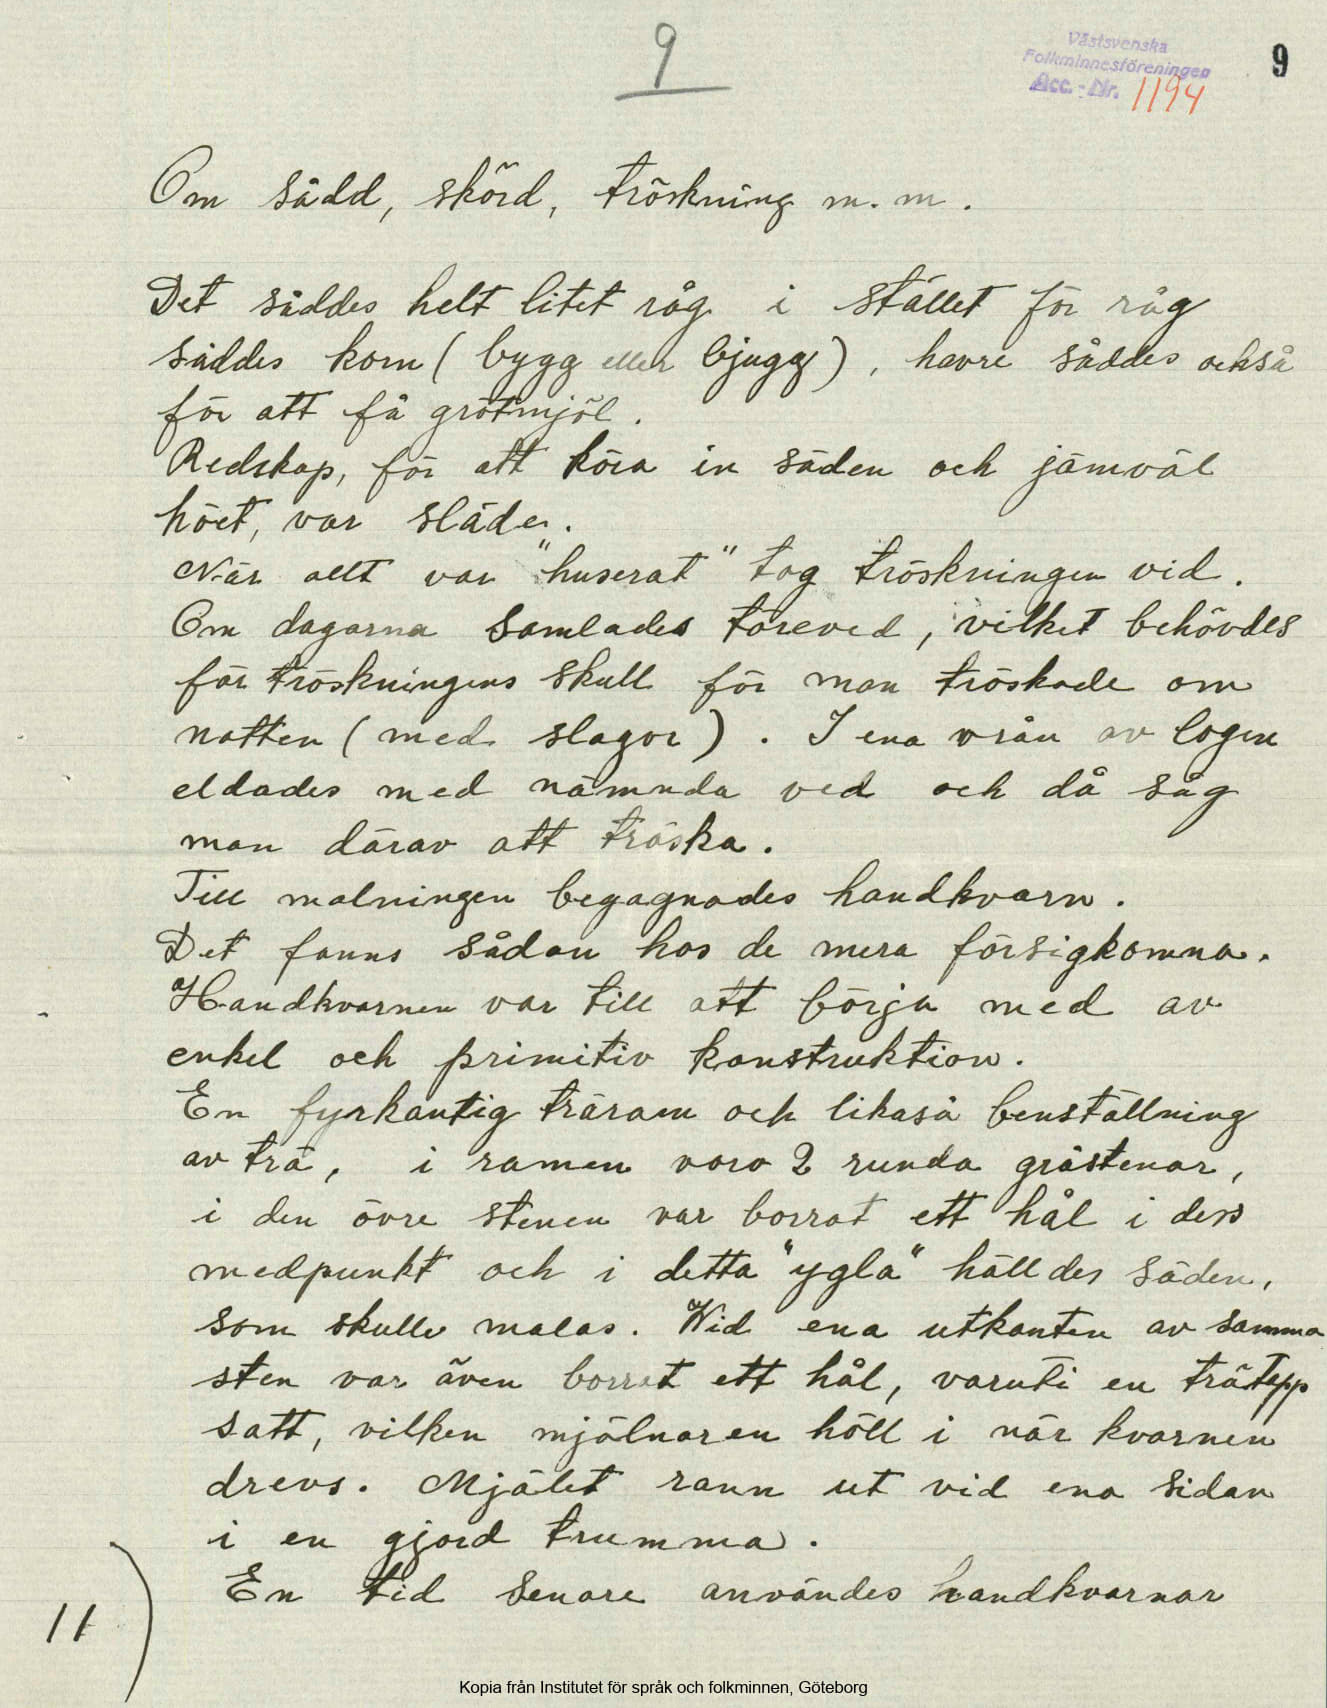 9
Västsvenska
Folkminnesföreningen
Acc. - Nr. 1194
9
Om sådd, skörd, tröskning m. m.
Det såddes helt litet råg i stället för råg
såddes korn (bygg eller bjugg), havre såddes också
för att få grötmjöl.
Redskap, för att köra in säden och jämväl
höet, var släde.
När allt var "huserat" tog tröskningen vid.
Om dagarna samlades töreved, vilket behövdes
för tröskningens skull för man tröskade om
natten (med slagor). I ena vrån av logen
eldades med nämnda ved och då såg
man därav att tröska.
Till malningen begagnades handkvarn.
Det fanns sådan hos de mera försigkomna.
Handkvarnen var till att börja med av
enkel och primitiv konstruktion.
En fyrkantig träram och likaså benställning
av trä, i ramen voro 2 runda gråstenar,
i den övre stenen var borrat ett hål i dess
medpunkt och i detta "ygla" hälldes säden,
som skulle malas. Wid ena utkanten av samma
sten var även borrat ett hål, varuti en trätapp
satt, vilken mjölnaren höll i när kvarnen
drevs. Mjölet rann ut vid ena sidan
i en gjord trumma.
En tid senare användes handkvarnar
11)
Kopia från Institutet för språk och folkminnen, Göteborg